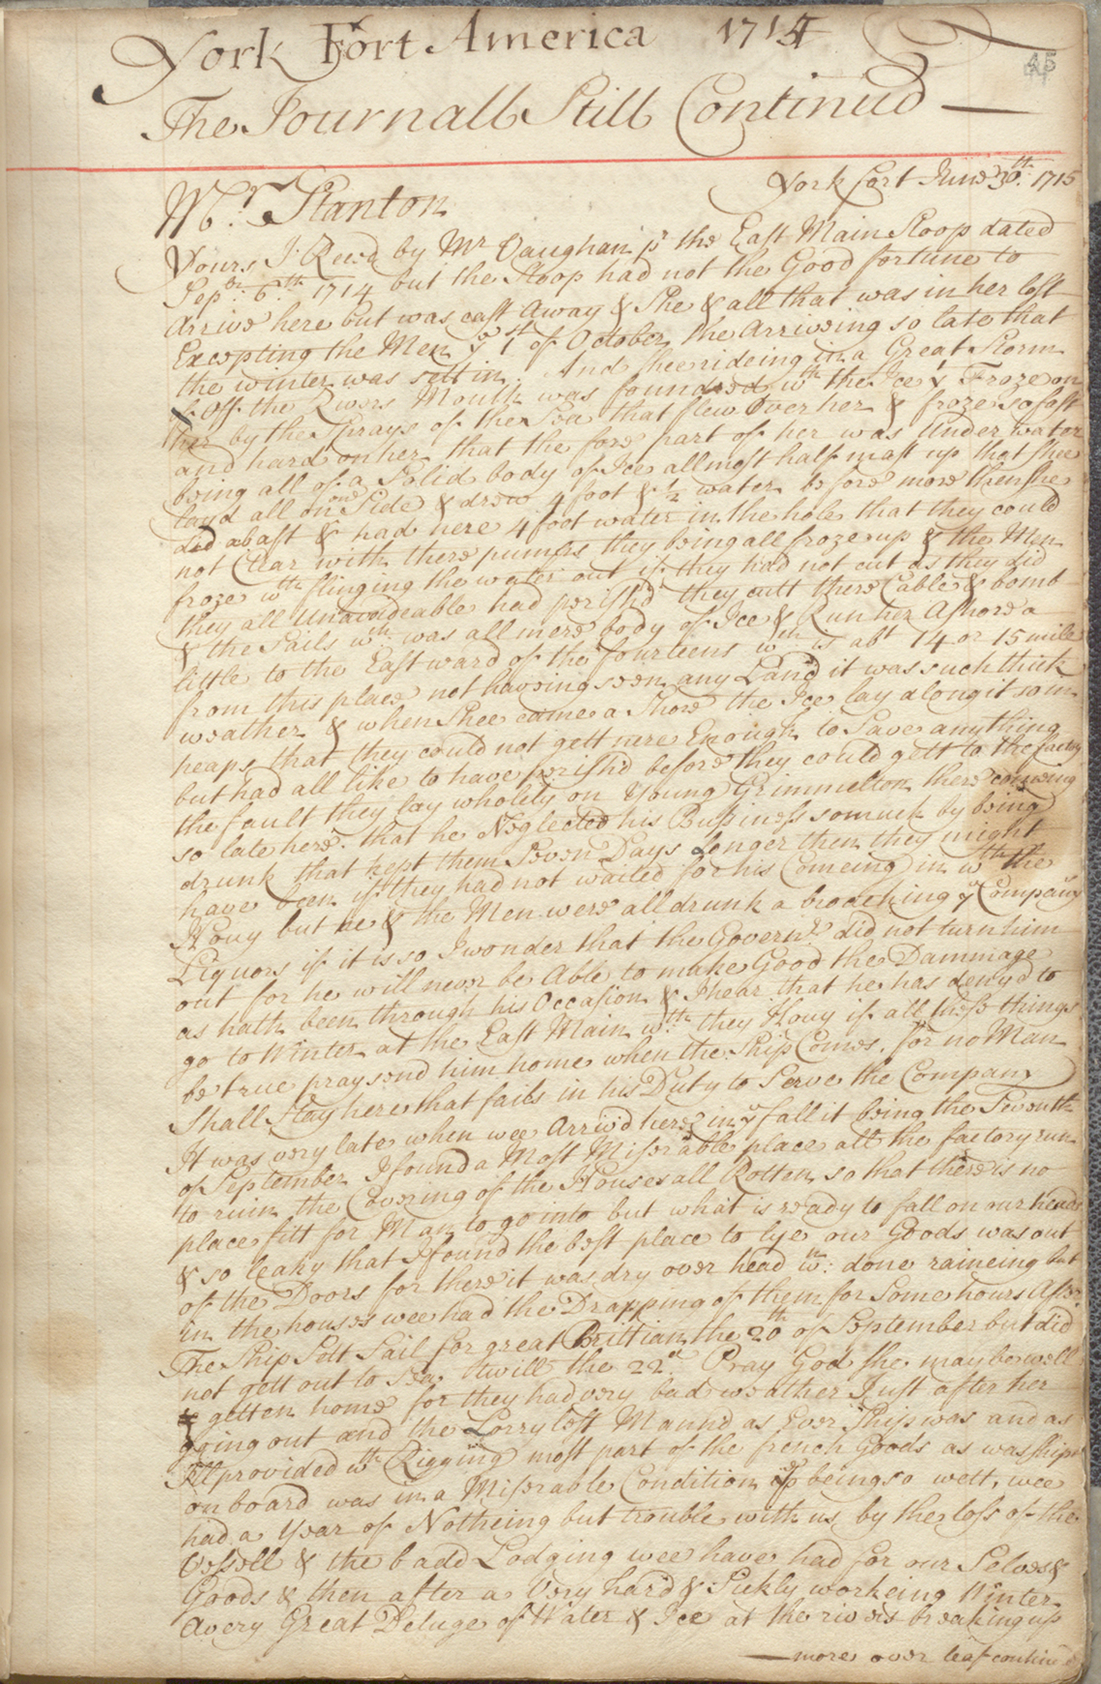 York Fort America 1714
45
The Journall Still Continud
York Fort June 30th. 1715
Mr. Stanton
Yours I Recd by Mr Vaughan pr the East Main Sloop dated
Sepbr: 6th 1714 but the Sloop had not the Good fortune to
Arrive here but was cast Away & She & all that was in her lost
Excepting the Men ye 1st of October, the Arriveing so late that
the winter was sett in. And shee rideing in a Great Storm
off the Rivers Mouth was foundred wth the Ice & Froze on
her by the Sprays of the Sea that flew Over her & froze so fast
and hard on her that the fore part of her was Under water
being all of a Solid body of Ice allmost half mast up that shee
layd all on one Side & drew 4 foot & ½ water before more then she
did abaft & had here 4 foot water in the hole that they could
not Clear with there pumps they being all froze up & the Men
froze wth flinging the water out if they had not cut as they did
they all Unavoideable had perish'd they cutt there Cable & bomb
& the Sails wth was all mere body of Ice & Run her Ashore a
little to the Eastward of the fourteens wch is abt 14 or 15 mile
from this place not haveing seen any Land it was such thick
weather & when Shee came a Shore the Ice lay along it som
heaps that they could not gett nere Enough to Save anything
but had all like to have perish'd before they could gett to the factory
the fault they lay wholely on Young Grimmelton there comeing
so late here. that he Neglected his Bussiness somuch by being
drunk that kept them Seven Days Longer then they might
have been if they had not waited for his Comeing in wth the
Houy but he & the Men were all drunk a broaching ye Companys
Liquors if it is so I wonder that the Governr did not turn him
out for he will never be Able to make Good the Dammage
as hath been through his Occasion & I hear that he has denyd to
go to Winter at the East Main wth they Houy if all these things
be true pray send him home when the Ship Comes, for no Man
Shall Stay here that fails in his Duty to Serve the Company
It was very late when wee Arriv'd here in ye fall it being the Seventh
of September I found a Most Misrable place all the factory run
to ruin the Covering of the Houses all Rotten so that there is no
place fitt for Man to go into but what is ready to fall on our heads
& so leaky that I found the best place to lye our Goods was out
of the Doors for there it was dry over head wn: done raineing but
in the houses wee had the Drapping of them for Some hours After
The Ship Sett Sail for great Brittian the 20th of September but did
not gett out to Sea twill the 22d Pray God she may be well
getten home for they had very bad weather Just after her
going out and the Sorrylest Mannd as Ever Ship was and as
Ill provided wth Rigging most part of the french Goods as was shipt
on board was in a Misrable Condition of being so wett, wee
had a Year of Notheing but trouble with us by the loss of the
Vessell & the badd Lodging wee have had for our Selves &
Goods & then after a Very hard & Sickly workeing Winter
avery Great Deluge of Water & Ice at the rivers breaking up
more over leaf continu'd